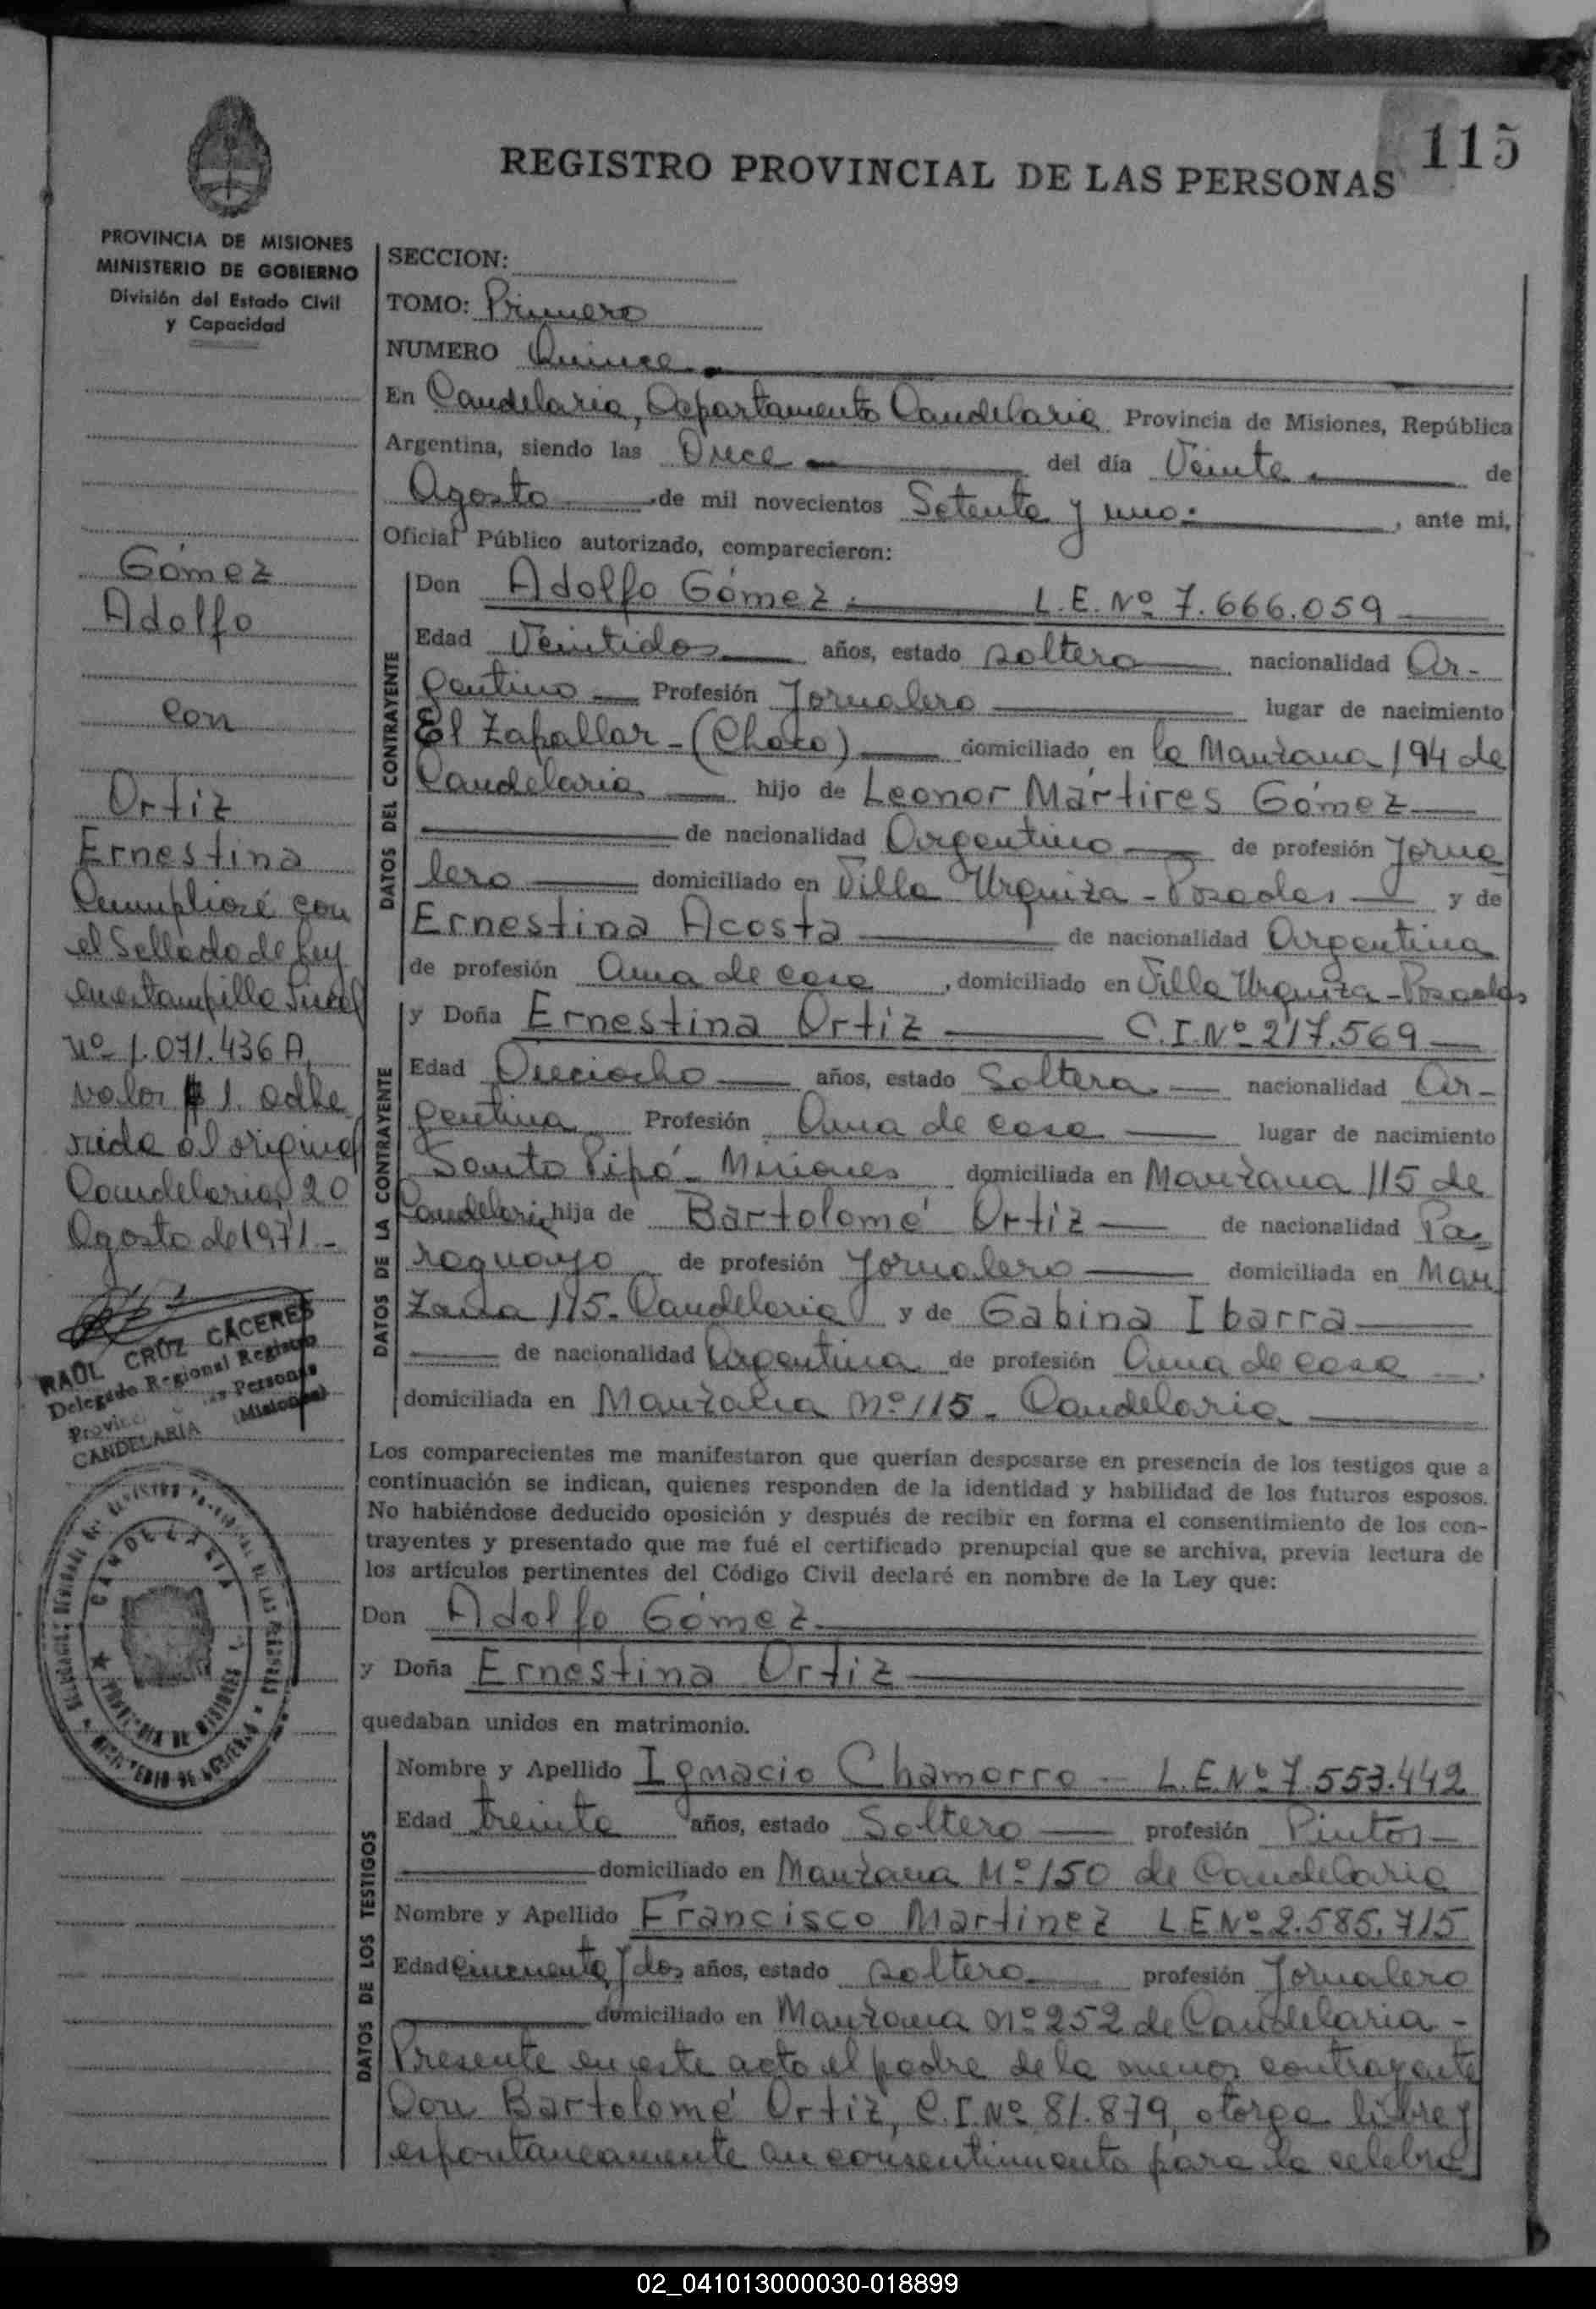 115
REGISTRO PROVINCIAL DE LAS PERSONAS
PROVINCIA DE MISIONES
MINISTERIO DE GOBIERNO
División del Estado Civil
y Capacidad
Gómez
Adolfo
con
Ortiz
Ernestina
Cumplioré con
el Sellado de Ley
en estampilla Fiscal
nº 1.071.436 A,
valor $ 1. adhe
rida al original
Candelaria, 20
Agosto de 1971.-
RAUL CRUZ CACERES
Delegado Regional Registro
Provinc las Personas
CANDELARIA (Misiones)
CANDELARIA
PROVINCIA DE MISIONES
MINISTERIO DE GOBIERNO
SECCION:
TOMO: Primero
NUMERO Quince.
En Candelaria, Departamento Candelaria Provincia de Misiones, República
Argentina, siendo las Once del día Veinte de
Agosto de mil novecientos Setenta y uno. , ante mi,
Oficial Público autorizado, comparecieron:
DATOS DEL CONTRAYENTE
Don Adolfo Gómez. L.E. Nº 7.666.059
Edad Veintidos años, estado soltero nacionalidad Ar-
gentino Profesión Jornalero lugar de nacimiento
El Zapallar - (Chaco) domiciliado en la Manzana 194 de
Candelaria hijo de Leonor Mártires Gómez
de nacionalidad Argentino de profesión Jorna
lero domiciliado en Villa Urquiza - Posadas y de
Ernestina Acosta de nacionalidad Argentina
de profesión Ama de casa , domiciliado en Villa Urquiza - Posadas
DATOS DE LA CONTRAYENTE
y Doña Ernestina Ortiz C.I. Nº 217.569
Edad Dieciocho años, estado Soltera nacionalidad Ar-
gentina Profesión Ama de casa lugar de nacimiento
Santo Pipó - Misiones domiciliada en Manzana 115 de
Candelaria hija de Bartolomé Ortiz de nacionalidad Pa
raguayo de profesión Jornalero domiciliada en Man
zana 115 - Candelaria y de Gabina Ibarra
de nacionalidad Argentina de profesión Ama de casa
domiciliada en Manzana nº 115 - Candelaria
Los comparecientes me manifestaron que querían desposarse en presencia de los testigos que a
continuación se indican, quienes responden de la identidad y habilidad de los futuros esposos.
No habiéndose deducido oposición y después de recibir en forma el consentimiento de los con-
trayentes y presentado que me fué el certificado prenupcial que se archiva, previa lectura de
los artículos pertinentes del Código Civil declaré en nombre de la Ley que:
Don Adolfo Gómez
y Doña Ernestina Ortiz
quedaban unidos en matrimonio.
DATOS DE LOS TESTIGOS
Nombre y Apellido Ignacio Chamorro - L.E. Nº 7.553.442
Edad treinta años, estado Soltero profesión Pintor
domiciliado en Manzana Nº 150 de Candelaria
Nombre y Apellido Francisco Martinez L E Nº 2.585.715
Edad cincuenta y dos años, estado soltero profesión Jornalero
domiciliado en Manzana nº 252 de Candelaria -
Presente en este acto el padre de la menor contrayente
Don Bartolomé Ortiz, C.I. Nº 81.879, otorga libre y
espontaneamente su consentimiento para la celebra
02_041013000030-018899